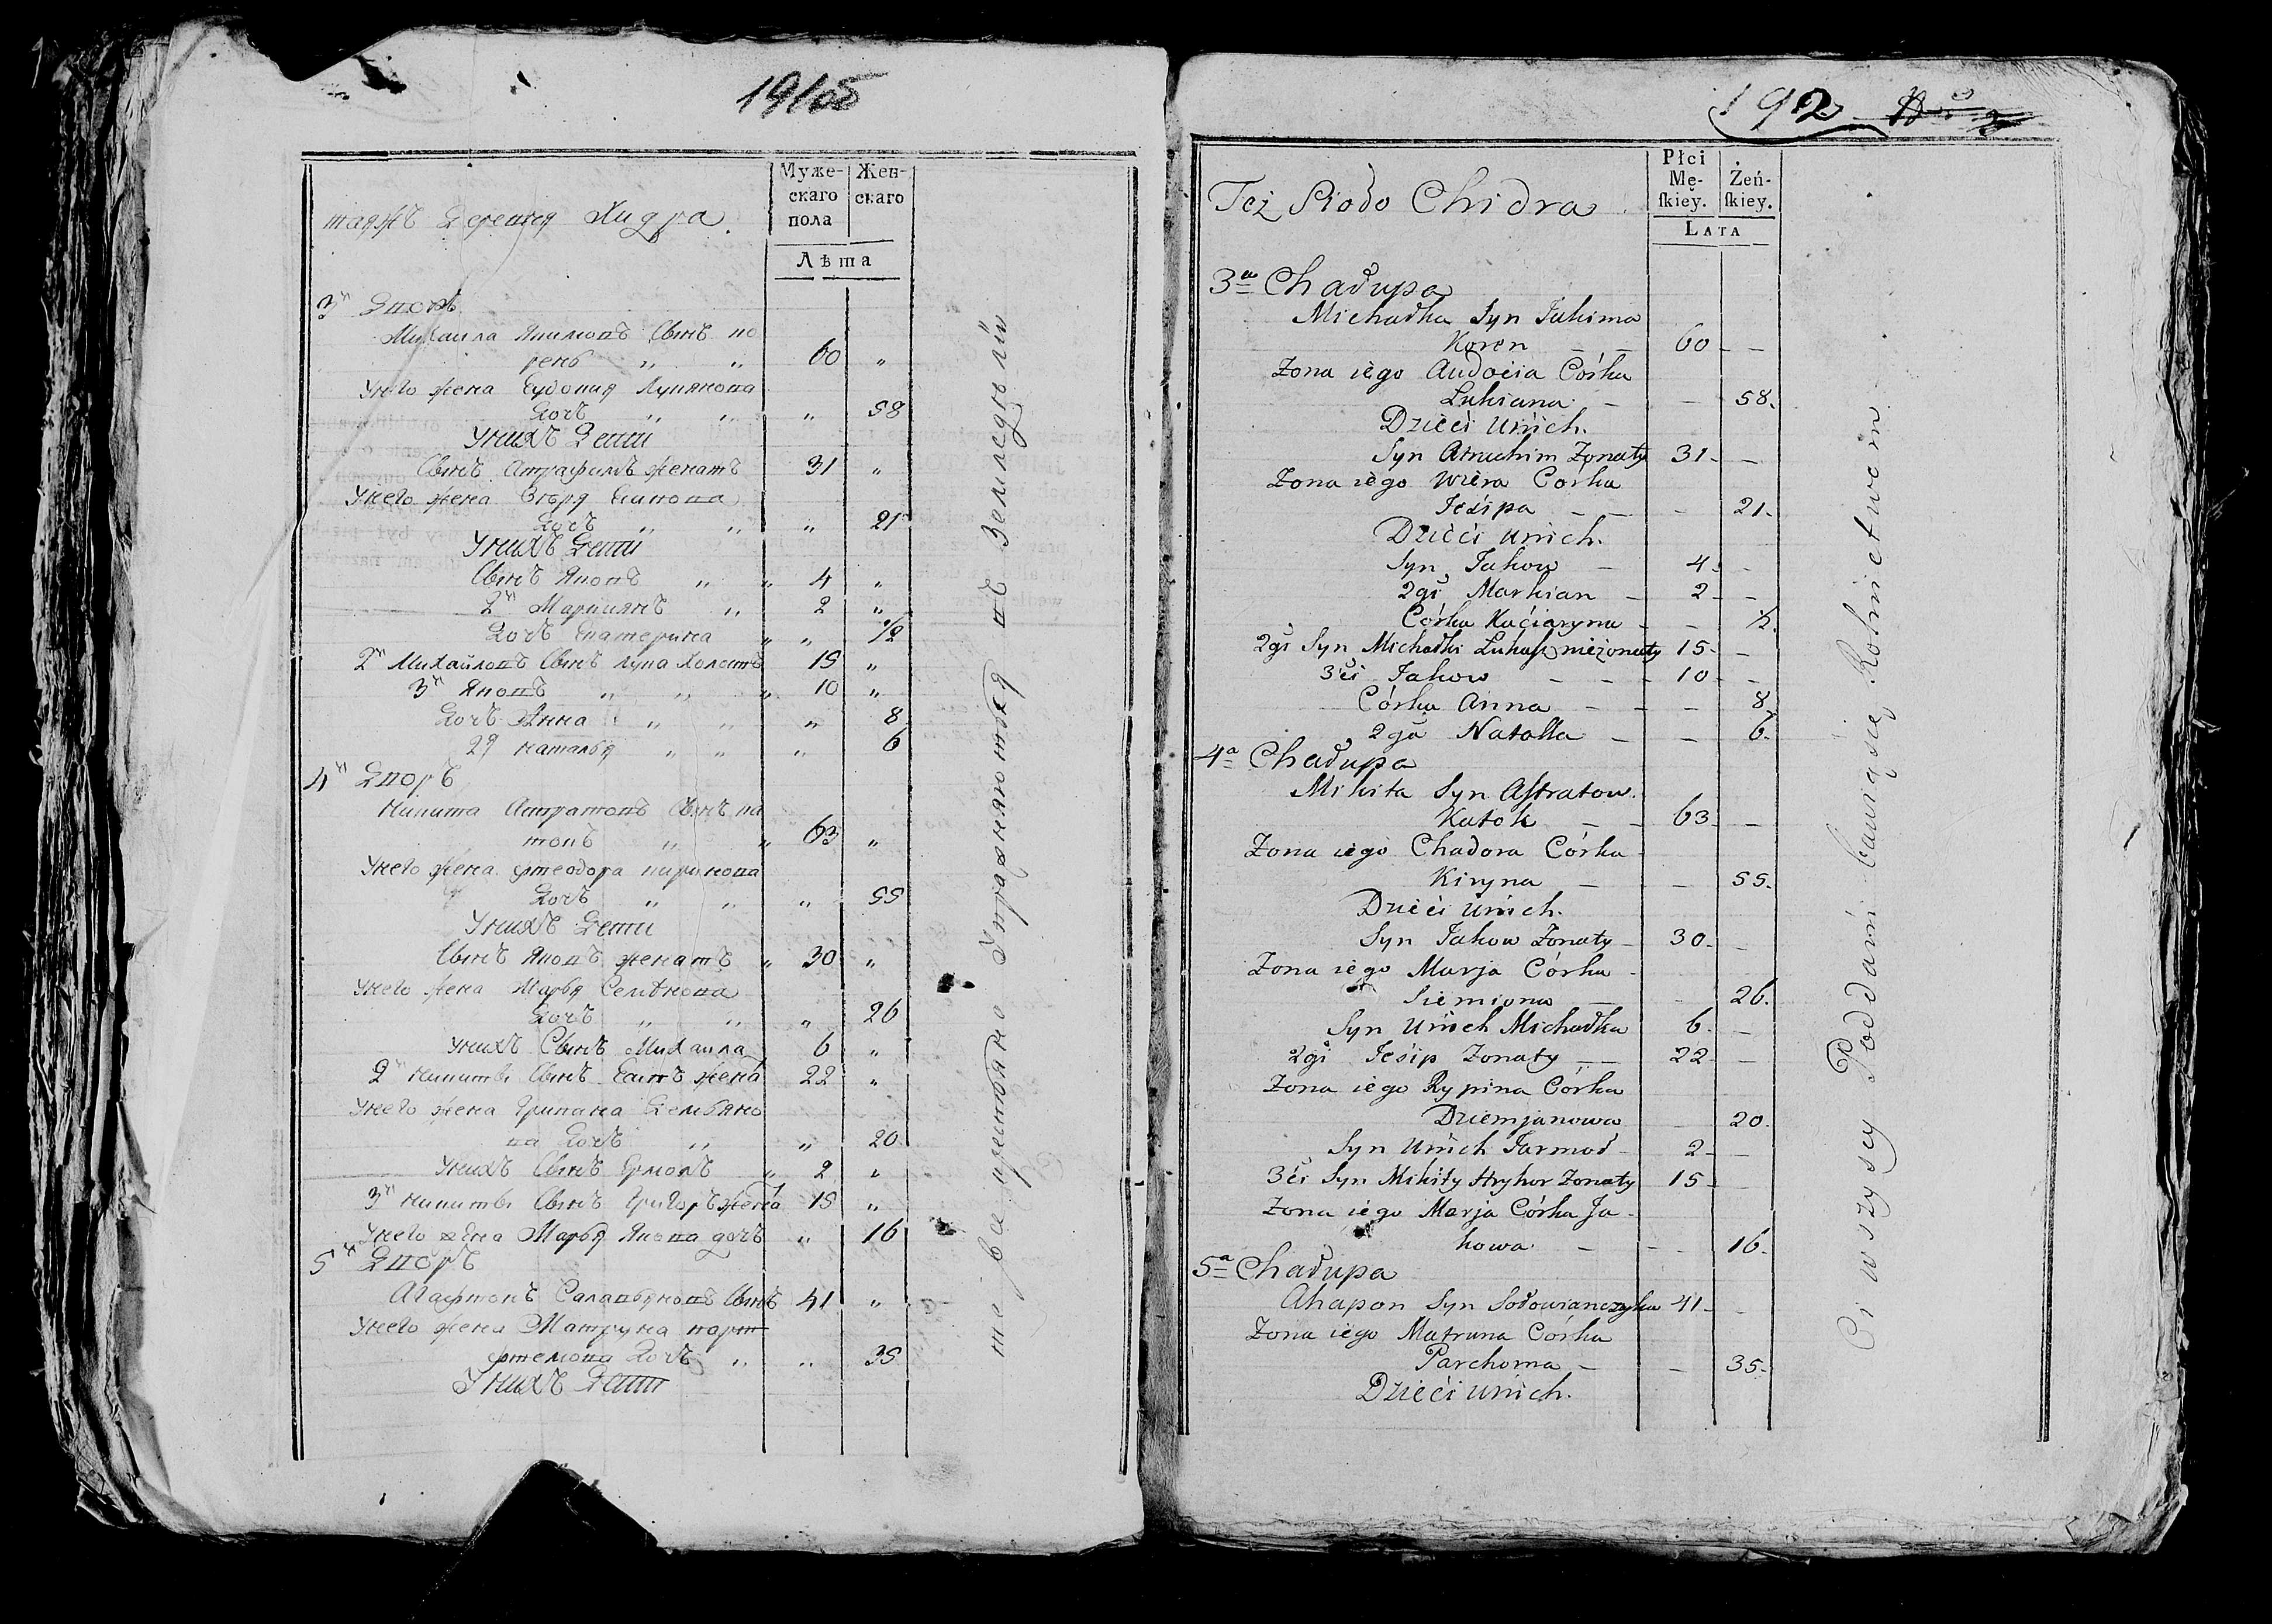 19/об
Муже-
скаго
пола
Жен-
скаго
Лѣта
таяжъ Деревня Хидра
3й Дворъ
Михаила Якимовъ Сынъ ко
рень „ „ 60 „
Унего жена Евдокия Лукянова
Дочь „ „ „ 58
Унихъ Дети
Сынъ Атрафимъ женатъ 31 „
Унего жена Вѣра Есипова
Дочь „ „ „ 21
Унихъ Дети
Сынъ Яковъ „ „ 4 „
2й Маркиянъ „ 2 „
Дочь Екатерина „ „ 1/2
2й Михайловъ Сынъ Лука Холостъ 15 „
3й Яковъ „ „ „ 10 „
Дочь Анна „ „ „ 8
2я Наталья „ „ „ 6
4й Дворъ
Никита Астратовъ Сынъ ка
токъ „ „ 63 „
Унего жена Фтеодора кирикова
Дочь „ „ „ 55
Унихъ Дети
Сынъ Яковъ женатъ „ 30 „
Унего жена Марья Семѣнова
Дочь „ „ „ 26
Унихъ Сынъ Михаила 6 „
2й Никиты Сынъ Есипъ жена 22 „
Унего жена Грипина Демьяно
ва Дочь „ „ 20
Унихъ Сынъ Ермолъ „ 2 „
3й Никиты Сынъ Григоръ жена 15 „
Унего жена Марья Якова дочь „ 16
5й Дворъ
Агафтонъ Салавьяновъ Сынъ 41 „
Унего жена Матруна парт
фтемова Дочь „ „ 35
Унихъ Дети
все крестьяне Упражняются въ Земледелии
192
Płci
Mę-
skiey.
Żeń-
skiey.
Lata
Też Sioło Chidra
3a Chałupa
Michałka Syn Jakima
Koren — — 60 — —
Zona iego Audocia Córka
Łukiana — — 58.
Dzieci unich.
Syn Atruchim Zonaty 31 — —
Zona iego Wiera Córka
Jesipa — — — 21 —
Dzieci unich.
Syn Jakow — 4 — —
2gi Markian — 2 — —
Córka Kaciaryna — — ½
2gi Syn Michałki Łukasz nieżonaty 15 — —
3ci Jakow — — — 10 — —
Córka Anna — — — 8
2ga Natalka — — 6 —
4a Chałupa
Mikita Syn Astratow.
Katok — — 63 — —
Zona iego Chadora Córka
Kiryna — — 55.
Dzieci unich.
Syn Jakow Zonaty — 30 — —
Zona iego Marja Córka —
Siemiona — — 26.
Syn Unich Michałka 6 — —
2gi Jesip Zonaty — — 22 — —
Zona iego Rypina Córka
Dziemjanowa — 20.
Syn Unich Jarmoł — 2 — —
3ci Syn Mikity Hryhor Zonaty 15 — —
Zona iego Marja Córka Ja-
kowa — — — 16 —
5a Chałupa
Ahapon Syn Sołowianczyka 41 — —
Zona iego Matruna Córka
Parchoma — — 35 —
Dzieci unich.
Ci wszyscy Poddani bawią się Rolnictwem